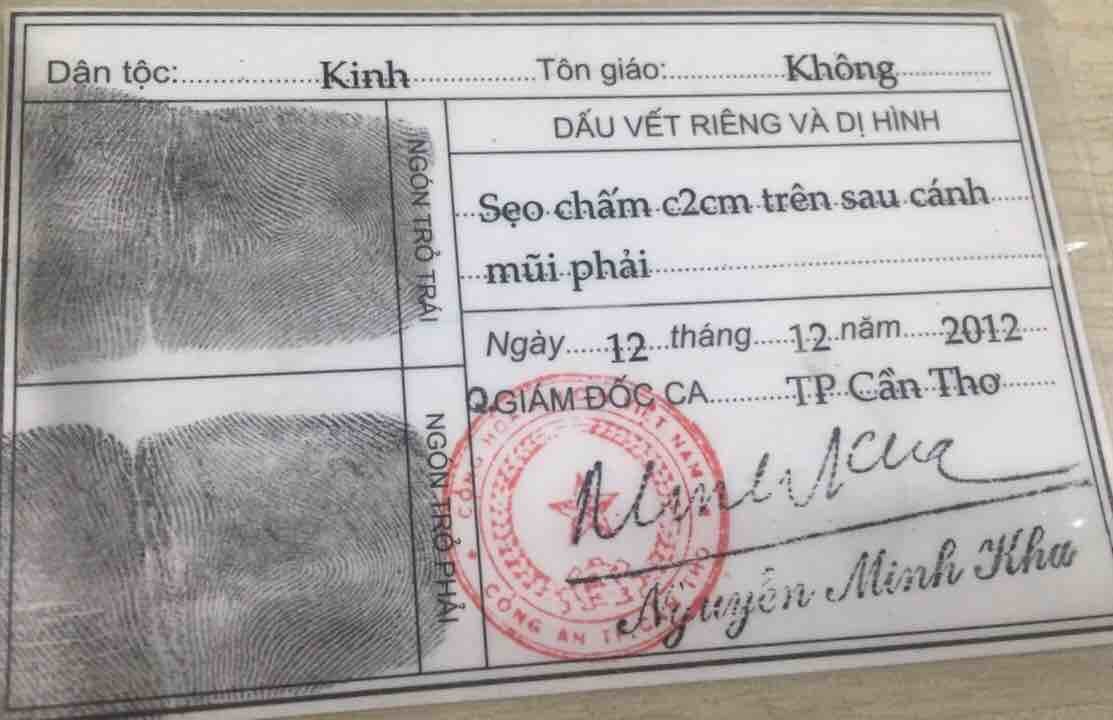 Dân tộc:....................Kinh..................Tôn giáo:................Không..............
NGÓN TRỎ TRÁI
DẤU VẾT RIÊNG VÀ DỊ HÌNH
Sẹo chấm c2cm trên sau cánh
mũi phải
Ngày......12...tháng.....12..năm.....2012
Q.GIÁM ĐỐC CA...........TP Cần Thơ
NGÓN TRỎ PHẢI
Nguyễn Minh Kha